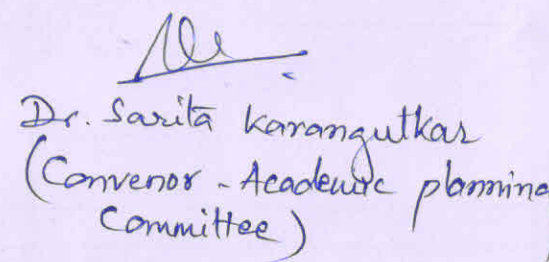 Dr. Sarita Karangutkar
(Convenor - Academic planning
Committee)